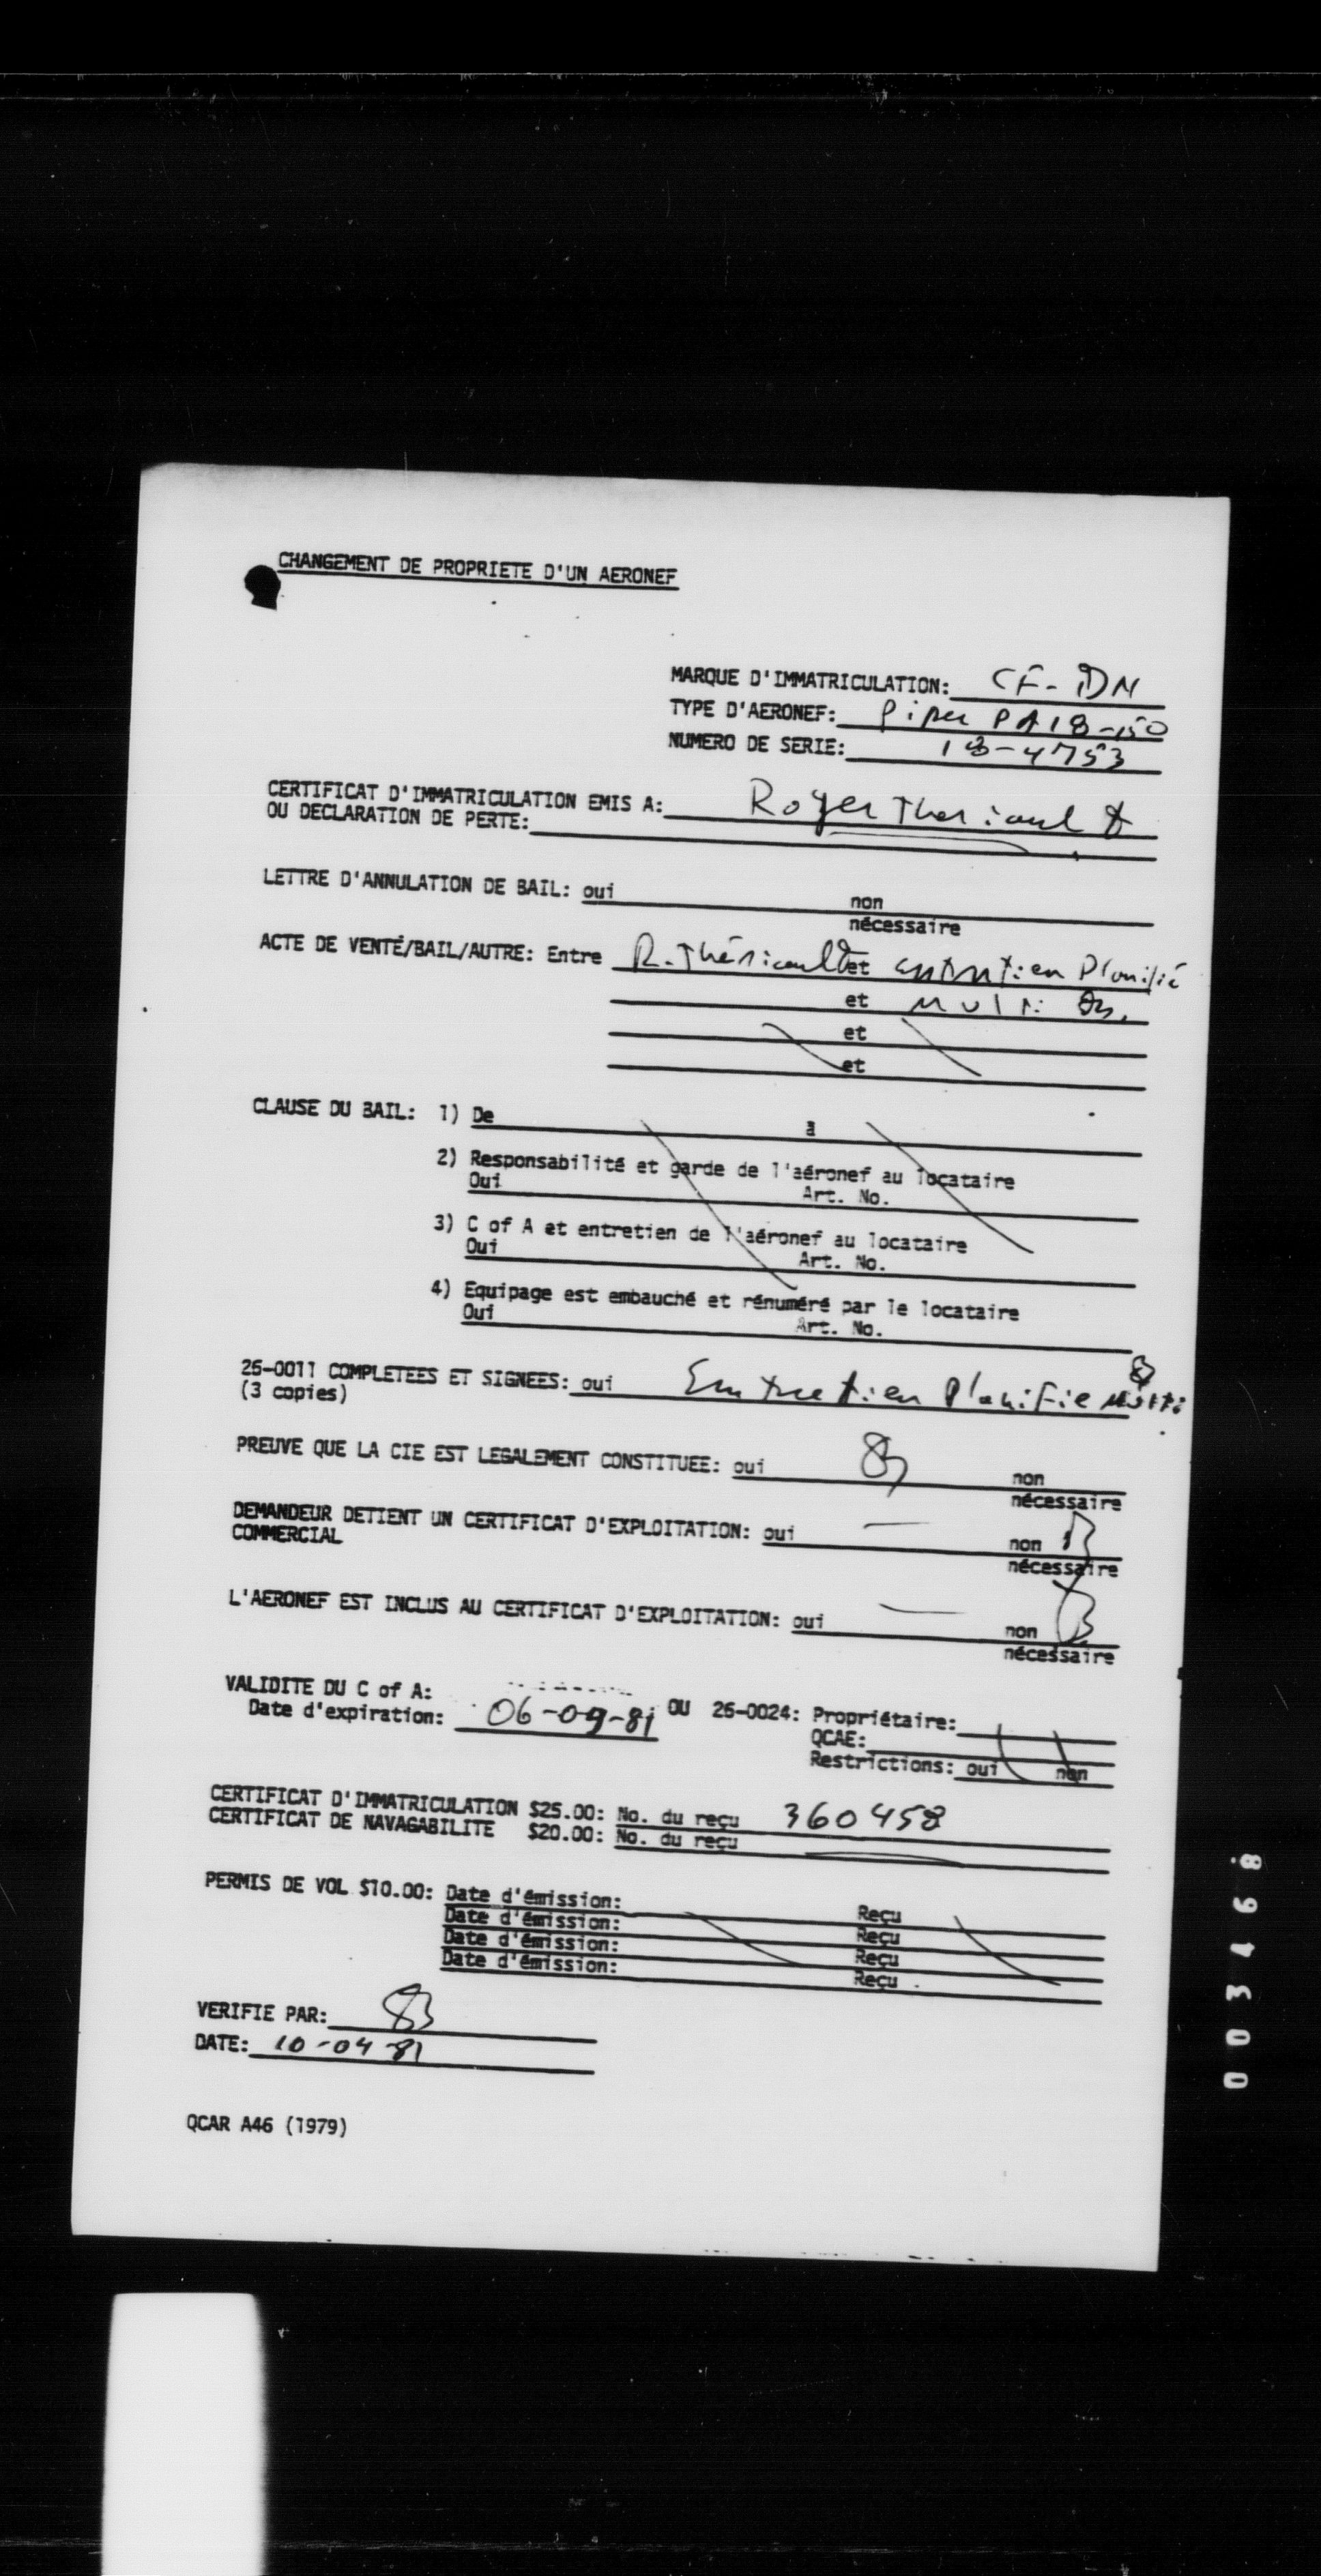 CHANGEMENT DE PROPRIETE D'UN AERONEF
MARQUE D'IMMATRICULATION: CF-IDN
TYPE D'AERONEF: Piper PA18-150
NUMERO DE SERIE: 18-4753
CERTIFICAT D'IMMATRICULATION EMIS A: Roger Theriault
OU DECLARATION DE PERTE:
LETTRE D'ANNULATION DE BAIL: oui non
nécessaire
ACTE DE VENTE/BAIL/AUTRE: Entre R. Thériault et entretien Planifié
et Multi
et
et
CLAUSE DU BAIL: 1) De a
2) Responsabilité et garde de l'aéronef au locataire
Oui Art. No.
3) C of A et entretien de l'aéronef au locataire
Oui Art. No.
4) Equipage est embauché et rénuméré par le locataire
Oui Art. No.
26-0011 COMPLETEES ET SIGNEES: oui Entretien Planifie Multi
(3 copies)
PREUVE QUE LA CIE EST LEGALEMENT CONSTITUEE: oui non
nécessaire
DEMANDEUR DETIENT UN CERTIFICAT D'EXPLOITATION: oui — non
COMMERCIAL nécessaire
L'AERONEF EST INCLUS AU CERTIFICAT D'EXPLOITATION: oui — non
nécessaire
VALIDITE DU C of A:
Date d'expiration: 06-09-81 OU 26-0024: Propriétaire:
QCAE:
Restrictions: oui non
CERTIFICAT D'IMMATRICULATION $25.00: No. du reçu 360458
CERTIFICAT DE NAVAGABILITE $20.00: No. du reçu
PERMIS DE VOL $10.00: Date d'émission: Reçu
Date d'émission: Reçu
Date d'émission: Reçu
Date d'émission: Reçu
VERIFIE PAR:
DATE: 10-04-81
QCAR A46 (1979)
003468